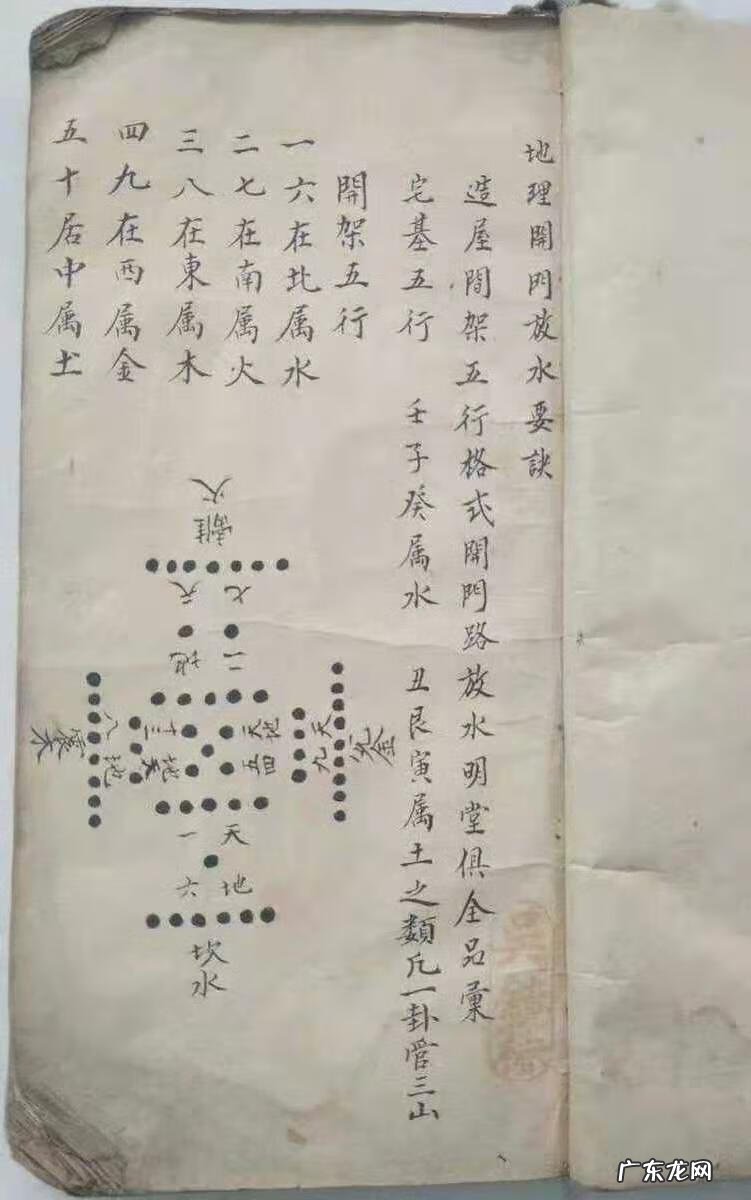 地理開門放水要訣
造屋間架五行格式開門路放水明堂俱全品彙
宅基五行 壬子癸属水 丑艮寅属土之類凡一卦管三山
開架五行
一六在北属水
二七在南属火
三八在東属木
四九在西属金
五十居中属土
離火
七天
二地
天九
地四
天五
兌金
天三
地八
地十
震木
天一
地六
坎水
广东龙网